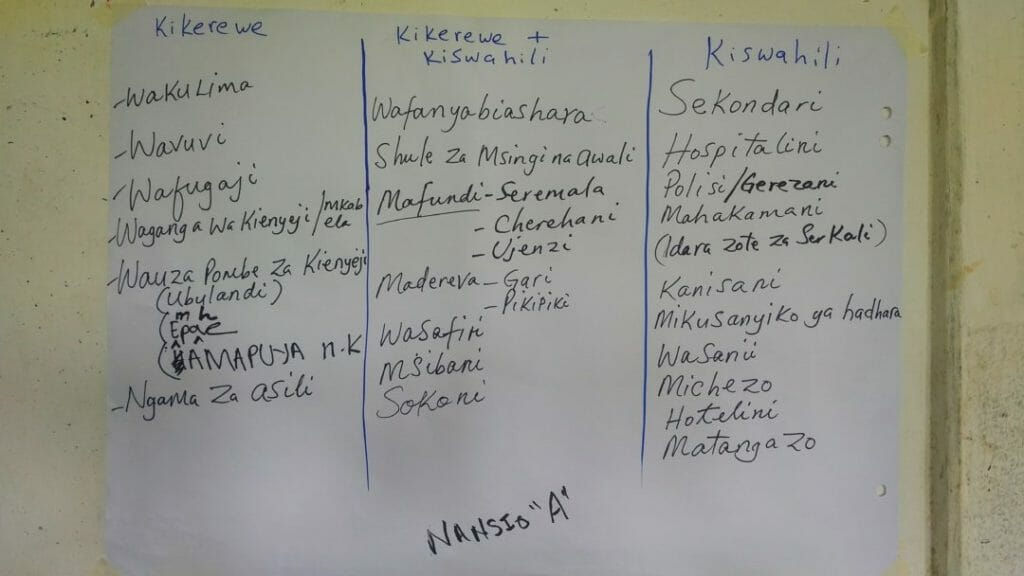 Kikerewe
-Wakulima
-Wavuvi
-Wafugaji
-Waganga wa Kienyeji/mkab
ela
-Wauza Pombe za Kienyeji
(Ubylandi)
AMAPUYA n.k
-Ngama za asili
Kikerewe +
Kiswahili
Wafanyabiashara
Shule za Msingi na awali
Mafundi-Seremala
- Cherehani
- Ujenzi
Madereva - Gari
- Pikipiki
Wasafiri
Msibani
Sokoni
Kiswahili
Sekondari
Hospitalini
Polisi/Gerezani
Mahakamani
(Idara zote za Serkali)
Kanisani
Mikusanyiko ya hadhara
Wasanii
Michezo
Hotelini
Matangazo
NANSIO "A"